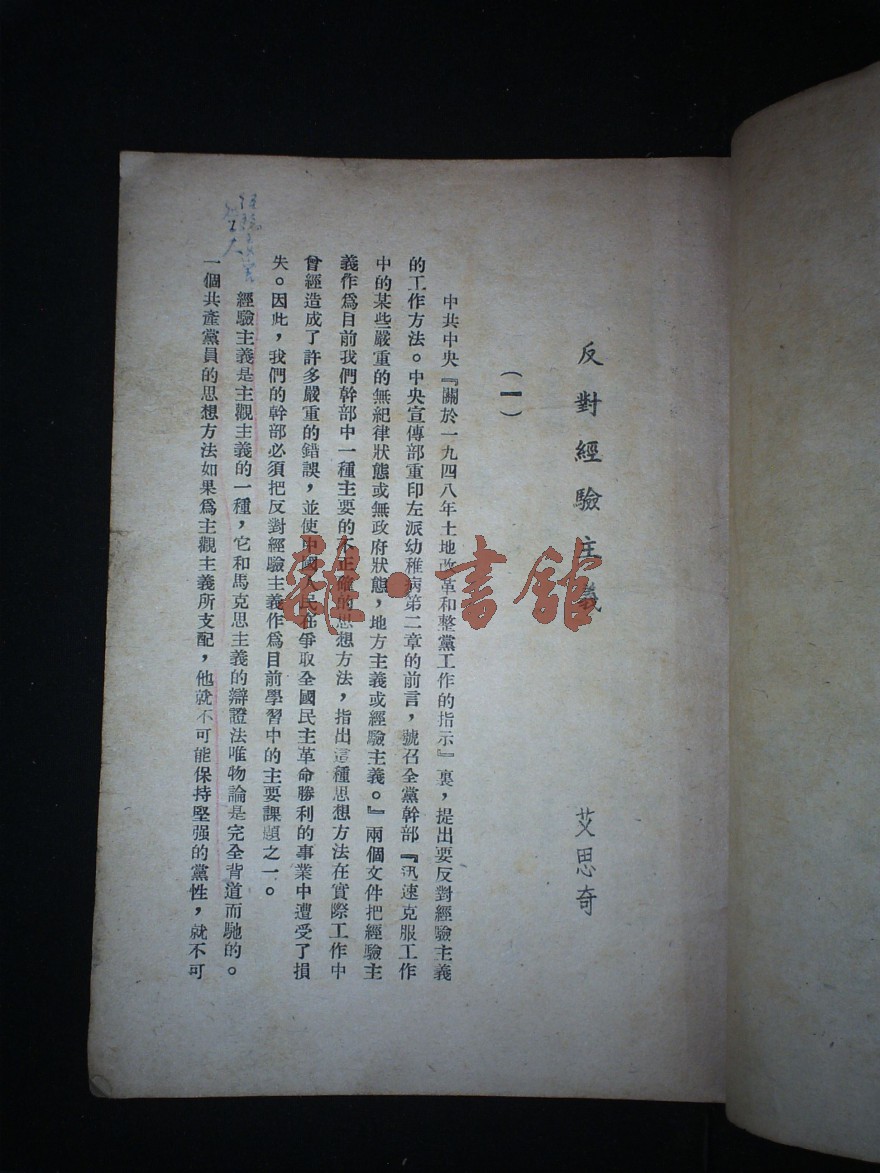 反對經驗主義
艾思奇
（一）
中共中央『關於一九四八年土地改革和整黨工作的指示』裏，提出要反對經驗主義
的工作方法。中央宣傳部重印左派幼稚病第二章的前言，號召全黨幹部『汛速克服工作
中的某些嚴重的無紀律狀態或無政府狀態，地方主義或經驗主義。』兩個文件把經驗主
義作爲目前我們幹部中一種主要的不正確的思想方法，指出這種思想方法在實際工作中
曾經造成了許多嚴重的錯誤，並使中國人民在爭取全國民主革命勝利的事業中遭受了損
失。因此，我們的幹部必須把反對經驗主義作爲目前學習中的主要課題之一。
經驗主義是主觀主義的一種，它和馬克思主義的辯證法唯物論是完全背道而馳的。
一個共產黨員的思想方法如果爲主觀主義所支配，他就不可能保持堅强的黨性，就不可
雜·書館